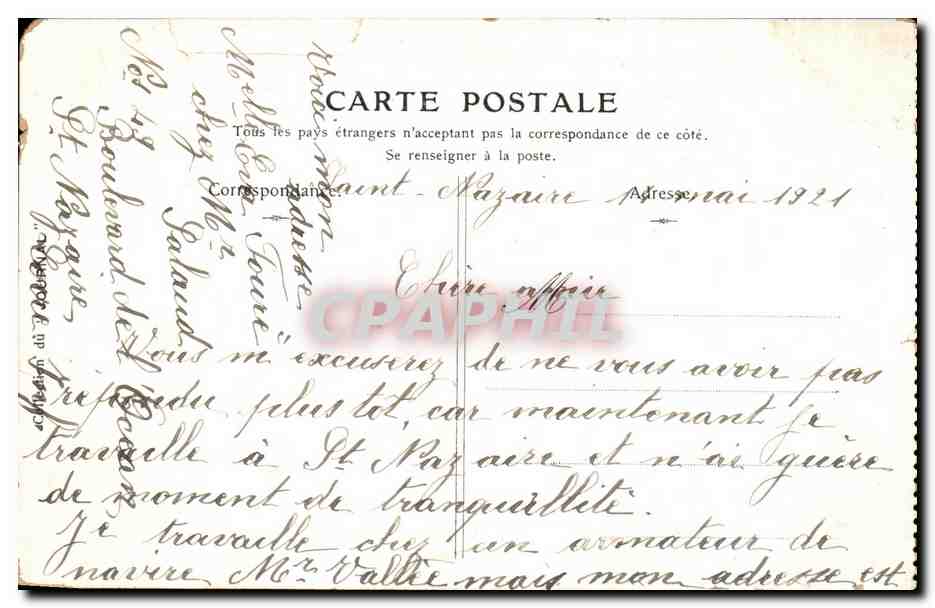 CARTE POSTALE
Tous les pays étrangers n'acceptant pas la correspondance de ce côté.
Se renseigner à la poste.
Correspondance.
Adresse
Saint-Nazaire 1 mai 1921
Chère
Vous m'excuserez de ne vous avoir pas
répondu plus tôt, car maintenant je
travaille à St Nazaire et n'ai guère
de moment de tranquillité.
Je travaille chez un armateur de
navire Mr Vallée mais mon adresse est
Voici mon
adresse
Melle Eva Fouré
chez Mr
Palaud
Nos 48
Boulevard de l'Océan
St Nazaire
Collection du "JOURNAL"
CPAPHIL